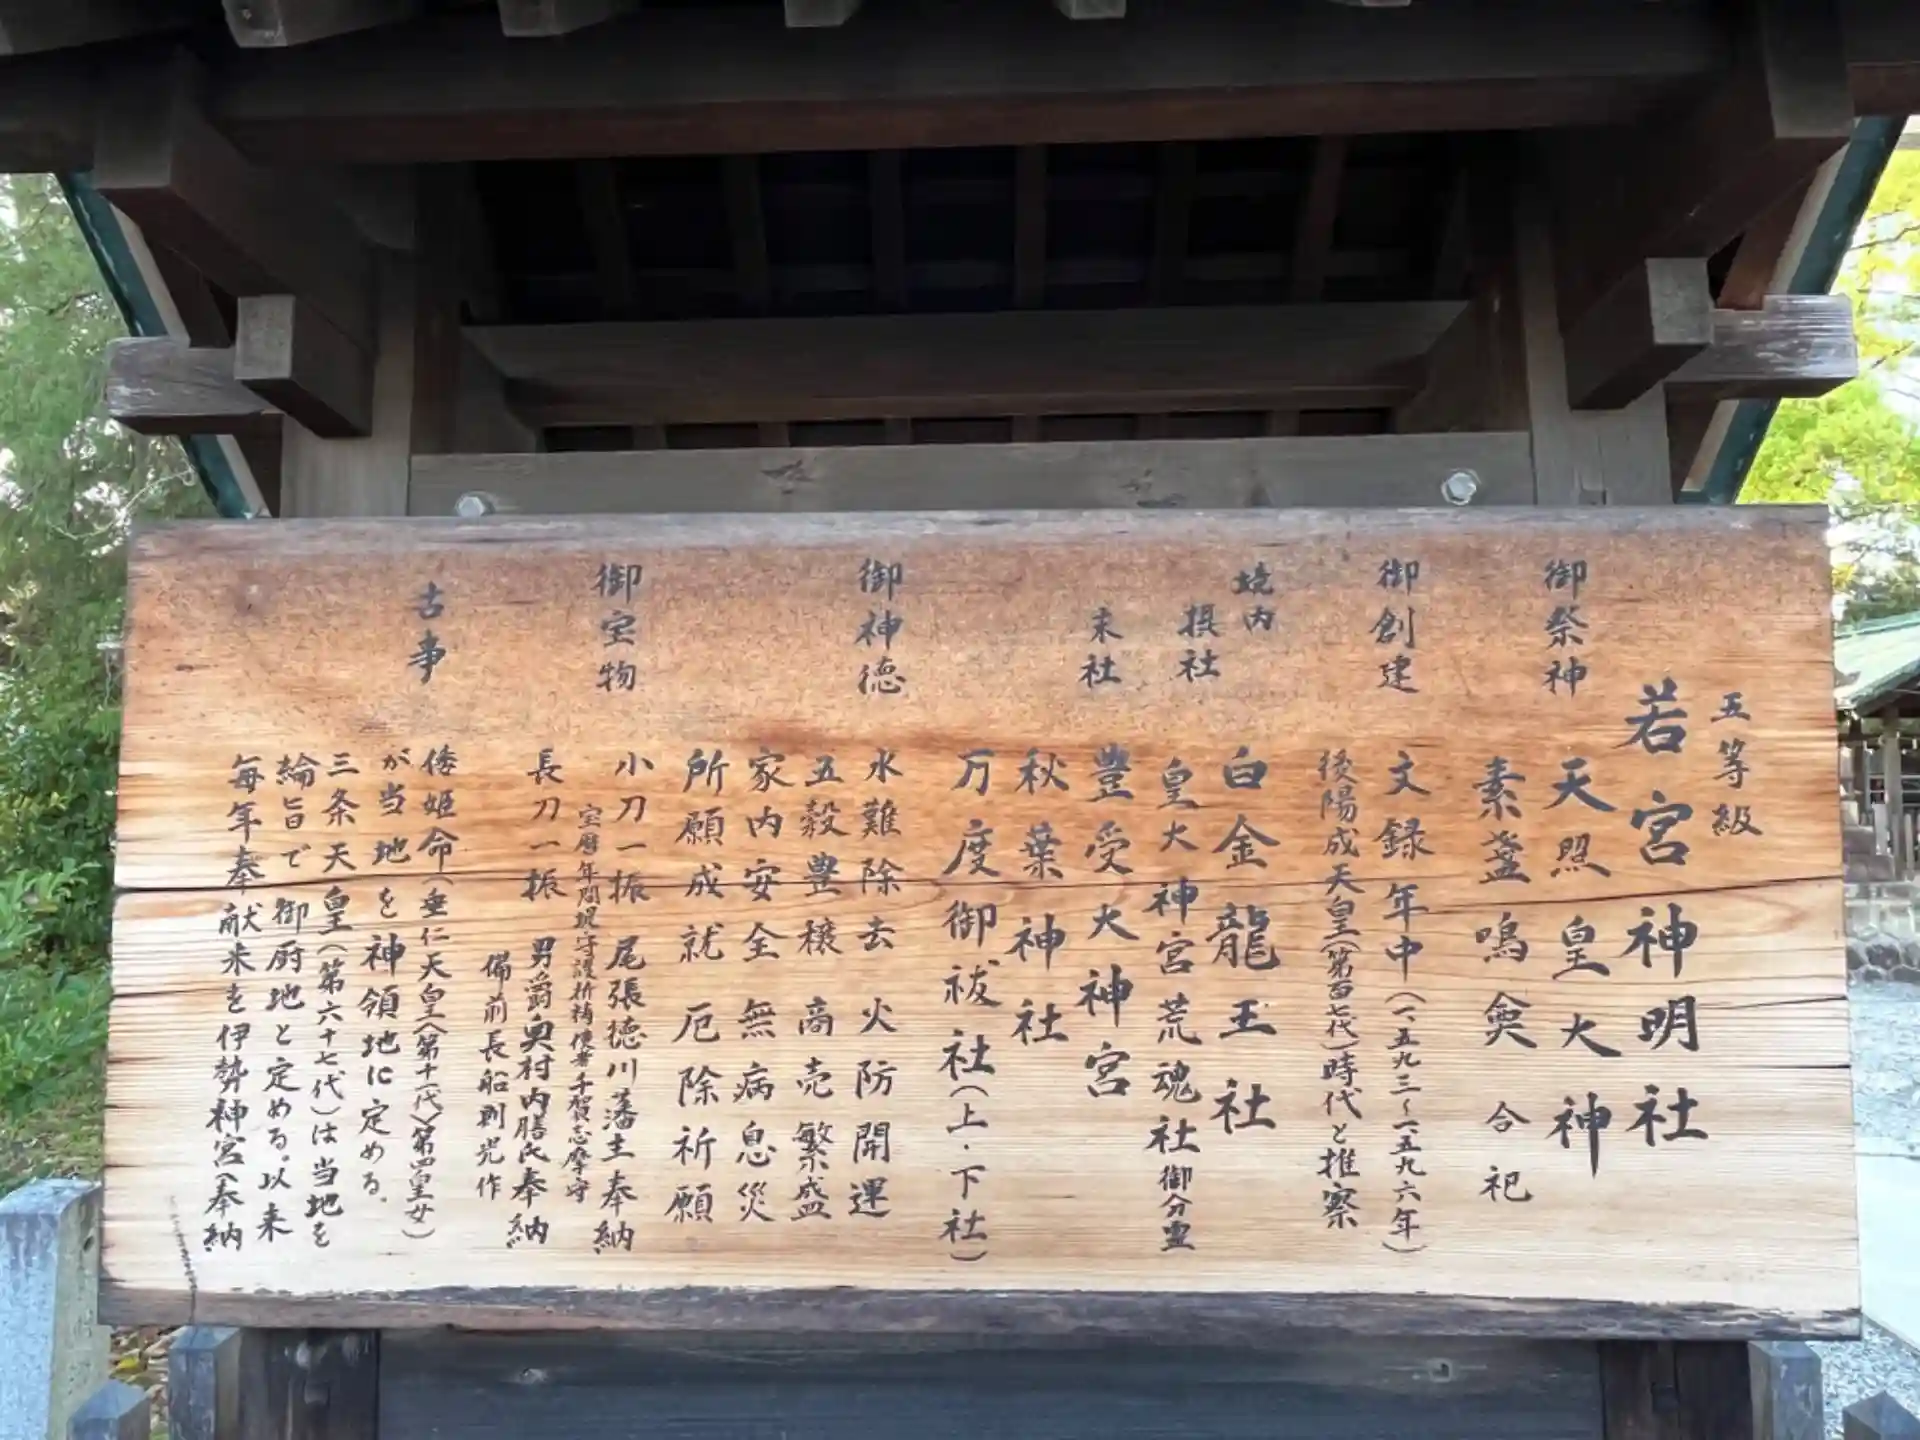 五等級
若宮神明社
御祭神
天照皇大神
素盞嗚尊 合祀
御創建
文録年中(一五九三~一五九六年)
後陽成天皇(第百七代)時代と推察
境内
摂社
白金龍王社
皇大神宮荒魂社御分霊
末社
豊受大神宮
秋葉神社
万度御祓社(上・下社)
御神徳
水難除去 火防開運
五穀豊穣 商売繁盛
家内安全 無病息災
所願成就 厄除祈願
御宝物
小刀一振 尾張徳川藩主奉納
宝暦年間堤守護祈祷使者千賀志摩守
長刀一振 男爵奥村内膳氏奉納
備前長船則光作
古事
倭姫命(垂仁天皇(第十一代)第四皇女)
が当地を神領地に定める。
三条天皇(第六十七代)は当地を
綸旨で御厨地と定める。以来
毎年奉献米を伊勢神宮へ奉納